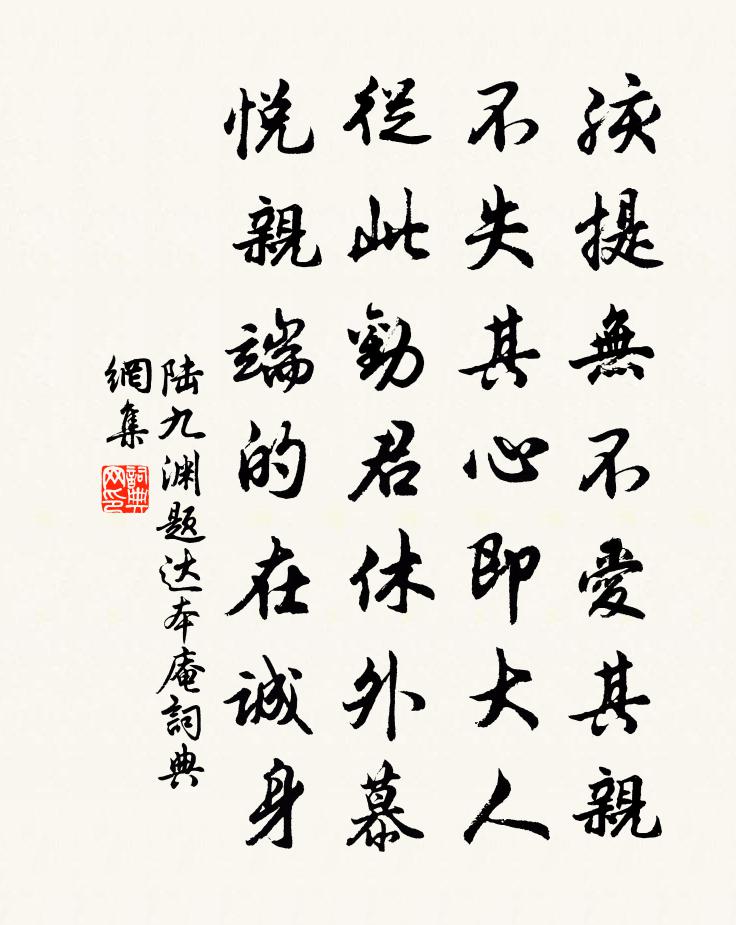 孩提無不愛其親
不失其心即大人
從此勸君休外慕
悅親端的在誠身
陆九渊题达本庵詞典
網集
詞典
网印